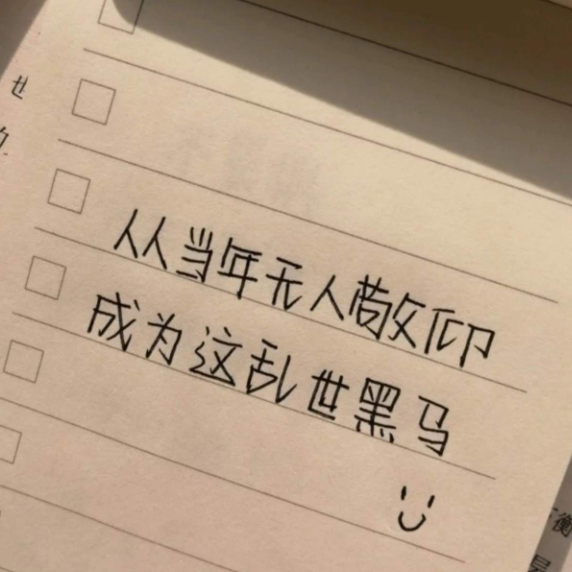 从当年无人敬仰
成为这乱世黑马
世
衡